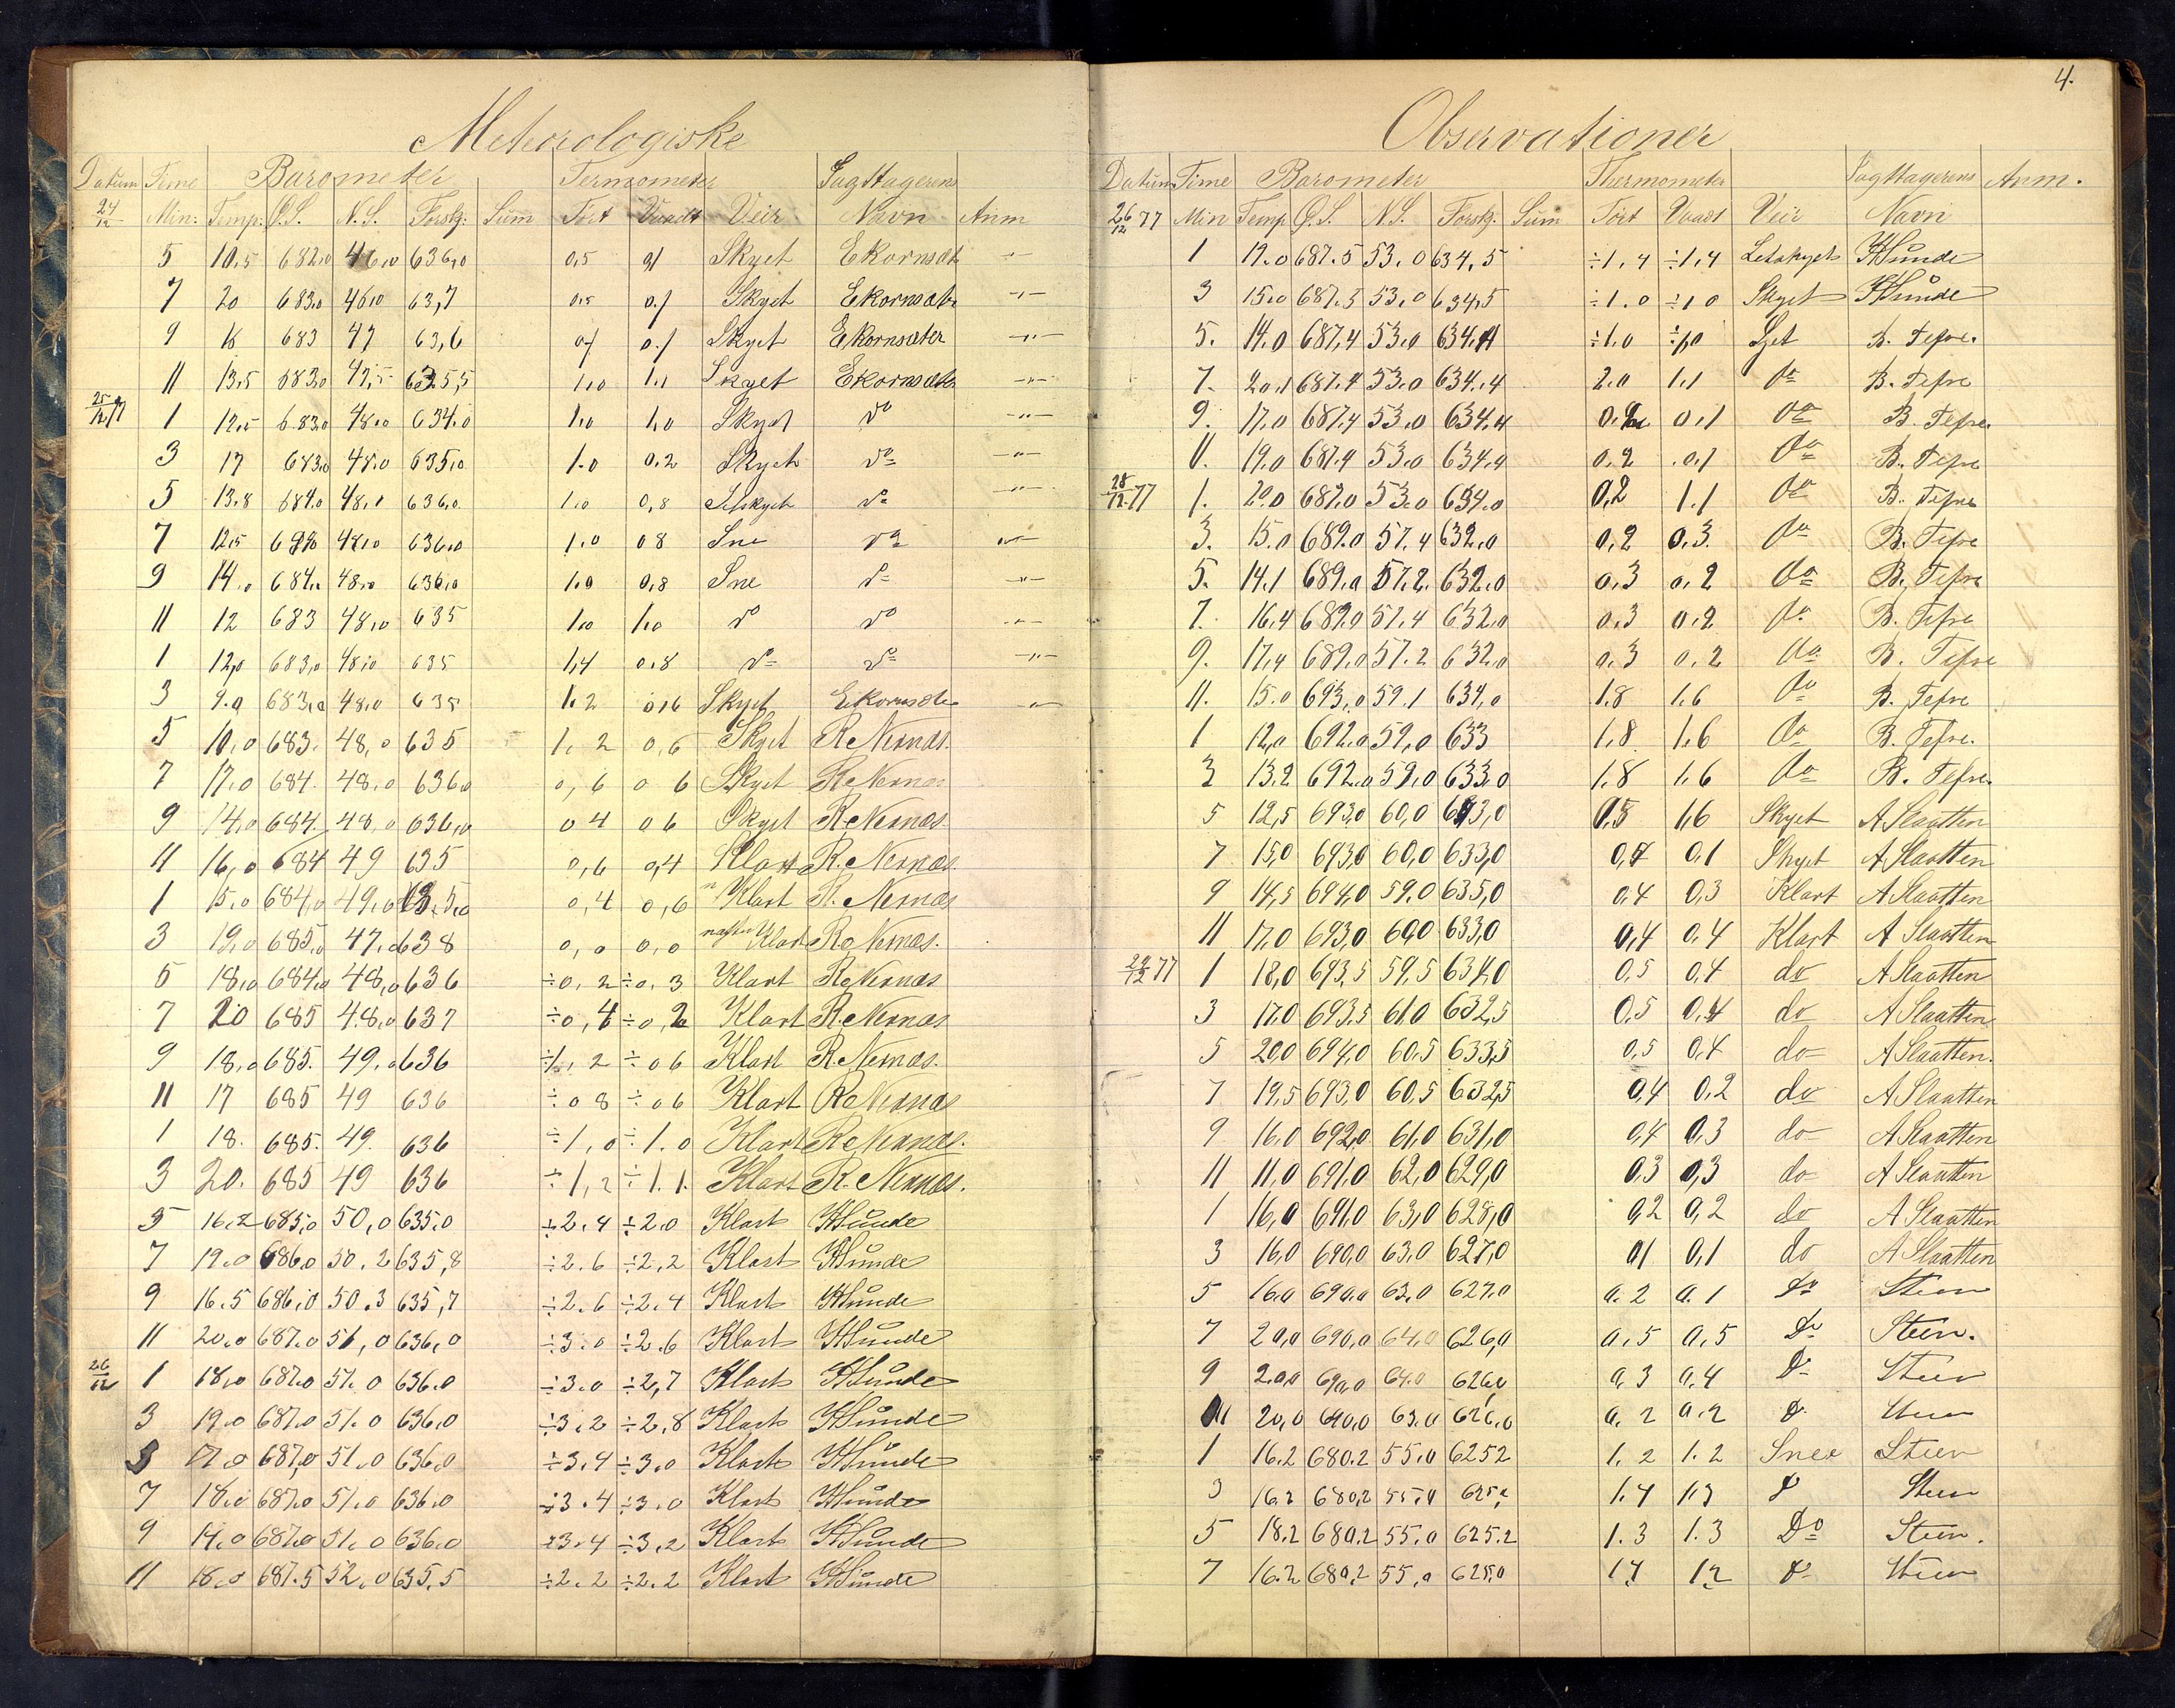 Metorologiske
Datum Time Barometer Termometer Iagttagerens
24/12 Min: Temp: Q.S. N.S. Forskj: Sum Tørt Vaadt Veir Navn Anm
5 10,5 682,0 46,0 636,0 0,5 0,1 Skyet Ekornsæt
7 20 683,0 46,0 63,7 0,5 0,1 Skyet Ekornsæt
9 18 683 47 63,6 0,1 0,1 Skyet Ekornsæter
11 13,5 683,0 47,5 635,5 1,0 1,1 Skyet Ekornsæt
25/12 77 1 12,5 683,0 48,0 634,0 1,0 1,0 Skyet do
3 17 683,0 48,0 635,0 1,0 0,2 Skyet do
5 13,8 684,0 48,0 636,0 1,0 0,8 do
7 12,5 48,0 636,0 1,0 0 8 Sne do
9 14,0 684,0 48,0 636,0 1,0 0,8 Sne do
11 12 683 48,0 635 1,0 1,0 do do
1 12,0 683,0 48,0 635 1,4 0,8 do do
3 9,0 683,0 48,0 635 1,2 0,6 Skyet Ekornsæte
5 10,0 683. 48,0 635 1,2 0,6 Skyet R. Nernæs.
7 17,0 684. 48,0 636,0 0,6 0 6 Skyet R. Nernæs
9 14,0 684. 48,0 636,0 0 4 0 6 Skyet R. Nernæs.
11 16,0 684 49 635 0,6 0,4 Klart R. Nernæs.
1 15,0 684,0 49,0 635,0 0,4 0,6 Klart R. Nernæs
3 19,0 685,0 47,0 638 0,0 0,0 næsten Klart R. Nernæs.
5 18,0 684,0 48,0 636 ÷0,2 ÷0,3 Klart R. Nernæs
7 20 685 48,0 637 ÷0,4 ÷0,2 Klart R. Nernæs
9 18,0 685. 49,0 636 ÷1,2 ÷0 6 Klart R. Nernæs.
11 17 685 49 636 ÷0 8 ÷0 6 Klart R. Nernæs
1 18. 685. 49. 636 ÷1,0 ÷1.0 Klart R. Nernæs.
3 20. 685 49 636 ÷1,2 ÷1.1. Klart R. Nernæs.
5 16,2 685,0 50,0 635,0 ÷2.4 ÷2.0 Klart HSunde
7 19.0 686,0 50.2 635,8 ÷2.6 ÷2.2 Klart HSunde
9 16.5 686,0 50.3 635,7 ÷2.6 ÷2.4 Klart HSunde
11 20,0 687.0 51,0 636,0 ÷3.0 ÷2.6 Klart HSunde
26/12 1 18,0 687,0 51.0 636.0 ÷3.0 ÷2,7 Klart HSunde
3 19.0 687.0 51.0 636.0 ÷3.2 ÷2.8 Klart HSunde
5 17.0 687,0 51.0 636.0 ÷3.4 ÷3.0 Klart HSunde
7 18.0 687.0 51.0 636.0 ÷3.4 ÷3.0 Klart HSunde
9 14.0 687.0 51.0 636.0 ÷3.4 ÷3.2 Klart HSunde
11 18.0 687.5 52.0 635,5 ÷2.2 ÷2.2 Klart HSunde
4.
Observationer
Datum Time Barometer Thermometer Iagttagerens Anm.
26/12 77 Min Temp Q.S. N.S. Forskj. Sum Tørt Vaadt Veir Navn
1 19.0 687.5 53.0 634,5 ÷1,4 ÷1,4 Letskyet HSunde
3 15.0 687.5 53,0 634,5 ÷1.0 ÷1 0 Skyet HSunde
5. 14.0 687,4 53,0 634,4 ÷1.0 B. Tefre.
7. 20,1 687.4 53.0 634.4 2.0 1.1 do B. Tefre
9. 17,0 687,4 53,0 634,4 0,1 do B. Tefre.
11. 19.0 687.4 53.0 634,4 0,2 0,1 do B. Tefre
28/12 77 1. 20.0 687.0 53.0 634.0 0,2 1.1 do B. Tefre
3. 15.0 689.0 57.4 632.0 0,2 0.3 do B. Tefre
5. 14.1 689.0 57.2 632.0 0.3 0,2 do B. Tefre
7. 16,4 689.0 57.4 632.0 0.3 0.2 do B. Tefre
9. 17,4 689.0 57.2 632.0 0.3 0.2 do B. Tefre
11. 15.0 693,0 59.1 634,0 1.8 1.6 do B. Tefre
1 12,0 692.0 59,0 633 1,8 1.6 do B. Tefre.
3 13.2 692.0 59,0 633.0 1.8 1.6 do B. Tefre.
5 12,5 693,0 60,0 633,0 1,6 Skyet A Slaatten
7 15,0 693,0 60,0 633,0 0,1 Skyet A Slaatten
9 14,5 694,0 59.0 635,0 0,4 0,3 Klart A Slaatten
11 17,0 693,0 60,0 633,0 0,4 0.4 Klart A Slaatten
29/12 77 1 18,0 693,5 59,5 634,0 0,5 0,4 do A Slaatten
3 17.0 693,5 61,0 632,5 0,5 0,4 do A Slaatten
5 20,0 694,0 60,5 633,5 0,5 0,4 do A Slaatten.
7 19,5 693,0 60,5 632,5 0,4 0,2 do A Slaatten
9 16,0 692,0 61,0 631,0 0,4 0,3 do A Slaatten
11 11,0 691,0 62,0 629,0 0,3 0,3 do A Slaatten
1 16,0 691,0 63,0 628,0 0,2 0,2 do A Slaatten
3 16,0 690,0 63,0 627,0 0,1 0,1 do A Slaatten
5 16,0 690,0 63,0 627,0 0.2 0.1 Do Steen
7 20,0 690,0 64,0 626,0 0,5 0,5 Do Steen.
9 20,0 690,0 64.0 626,0 0,3 0,4 Do Steen
11 20,0 690,0 63.0 626,0 0.2 0,2 Do Steen
1 16.2 680.2 55.0 6252 1.2 1.2 Snee Steen
3 16.2 680,2 55,0 625,2 1.4 1.3 Do Steen
5 18.2 680.2 55.0 625.2 1.3 1.3 Do Steen.
7 16.2 680,2 55,0 625,0 1,4 1,2 Do Steen